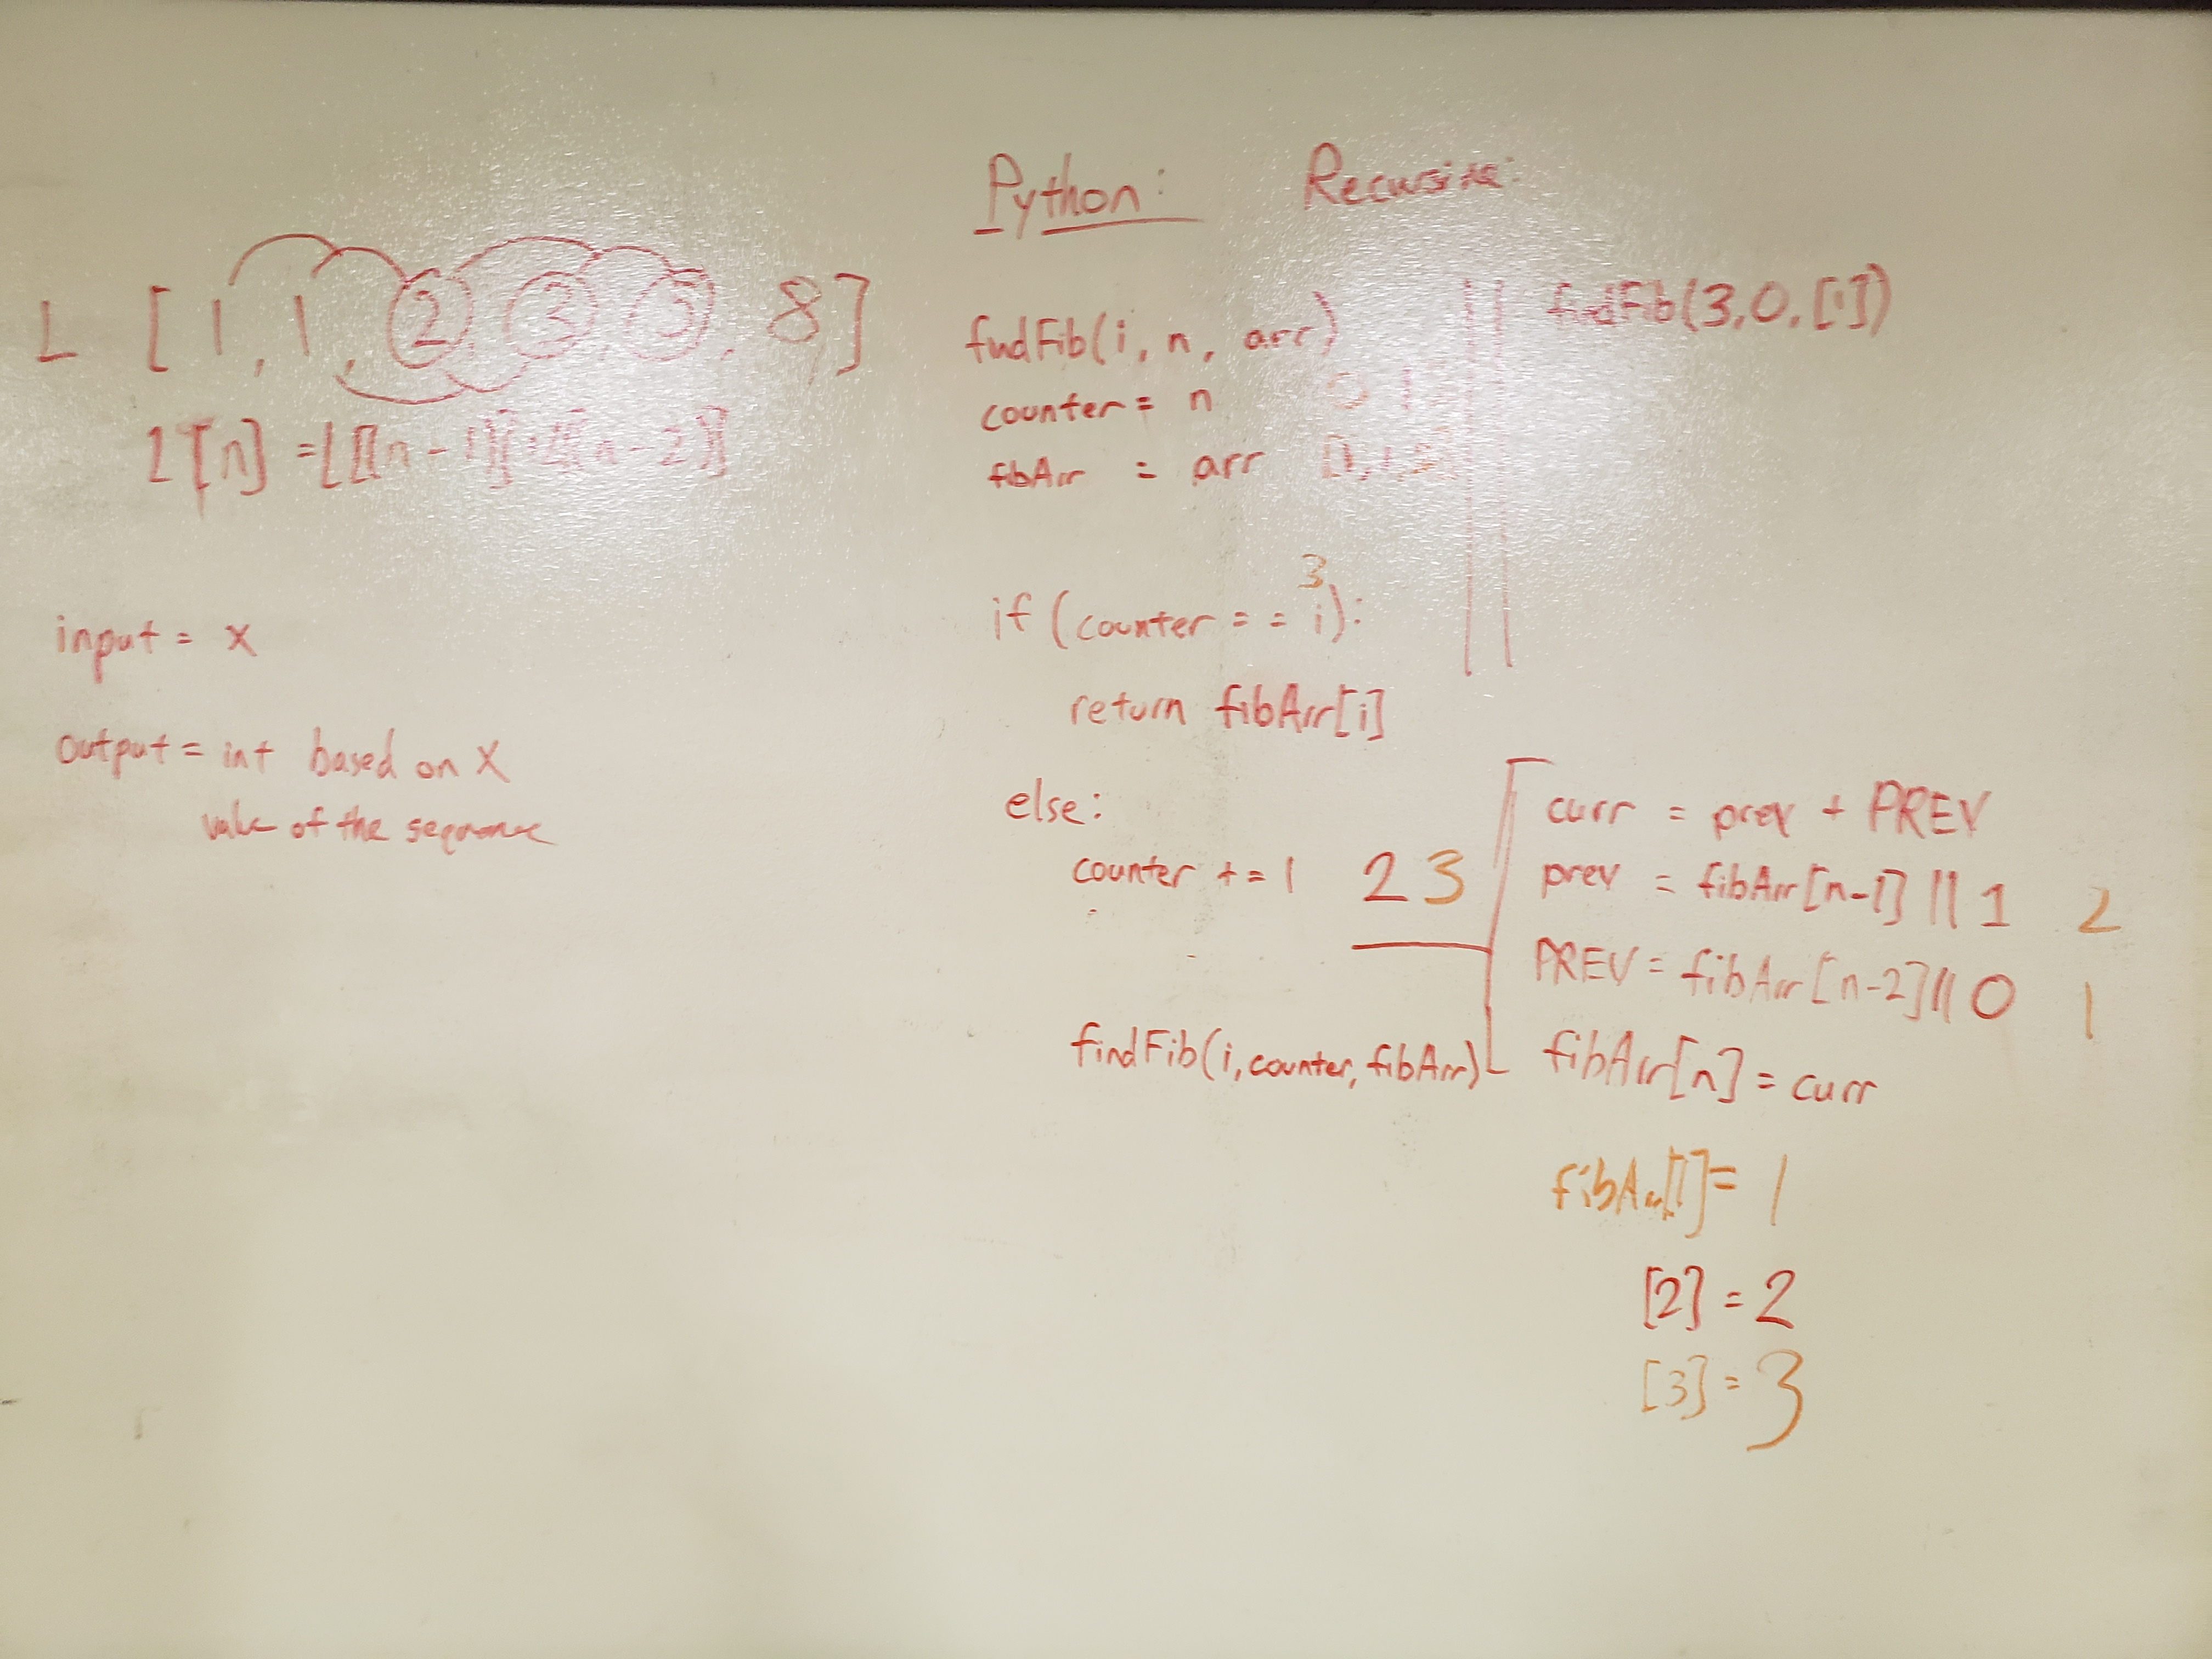 L [1, 1, 2, 3, 5, 8]
L[n] = L[[n-1]] L[n-2]]
input = x
output = int based on X
value of the sequence
Python: Recursive:
findFib(i, n, arr)
counter = n 0 1
fibArr = arr [1,1,2]
3
if (counter == i):
return fibArr[i]
else:
counter += 1 2 3
findFib(i, counter, fibArr)
findFib(3,0,[1])
curr = prev + PREV
prev = fibArr[n-1] || 1 2
PREV = fibArr[n-2] || 0 1
fibArr[n] = curr
fibArr[1] = 1
[2] = 2
[3] = 3